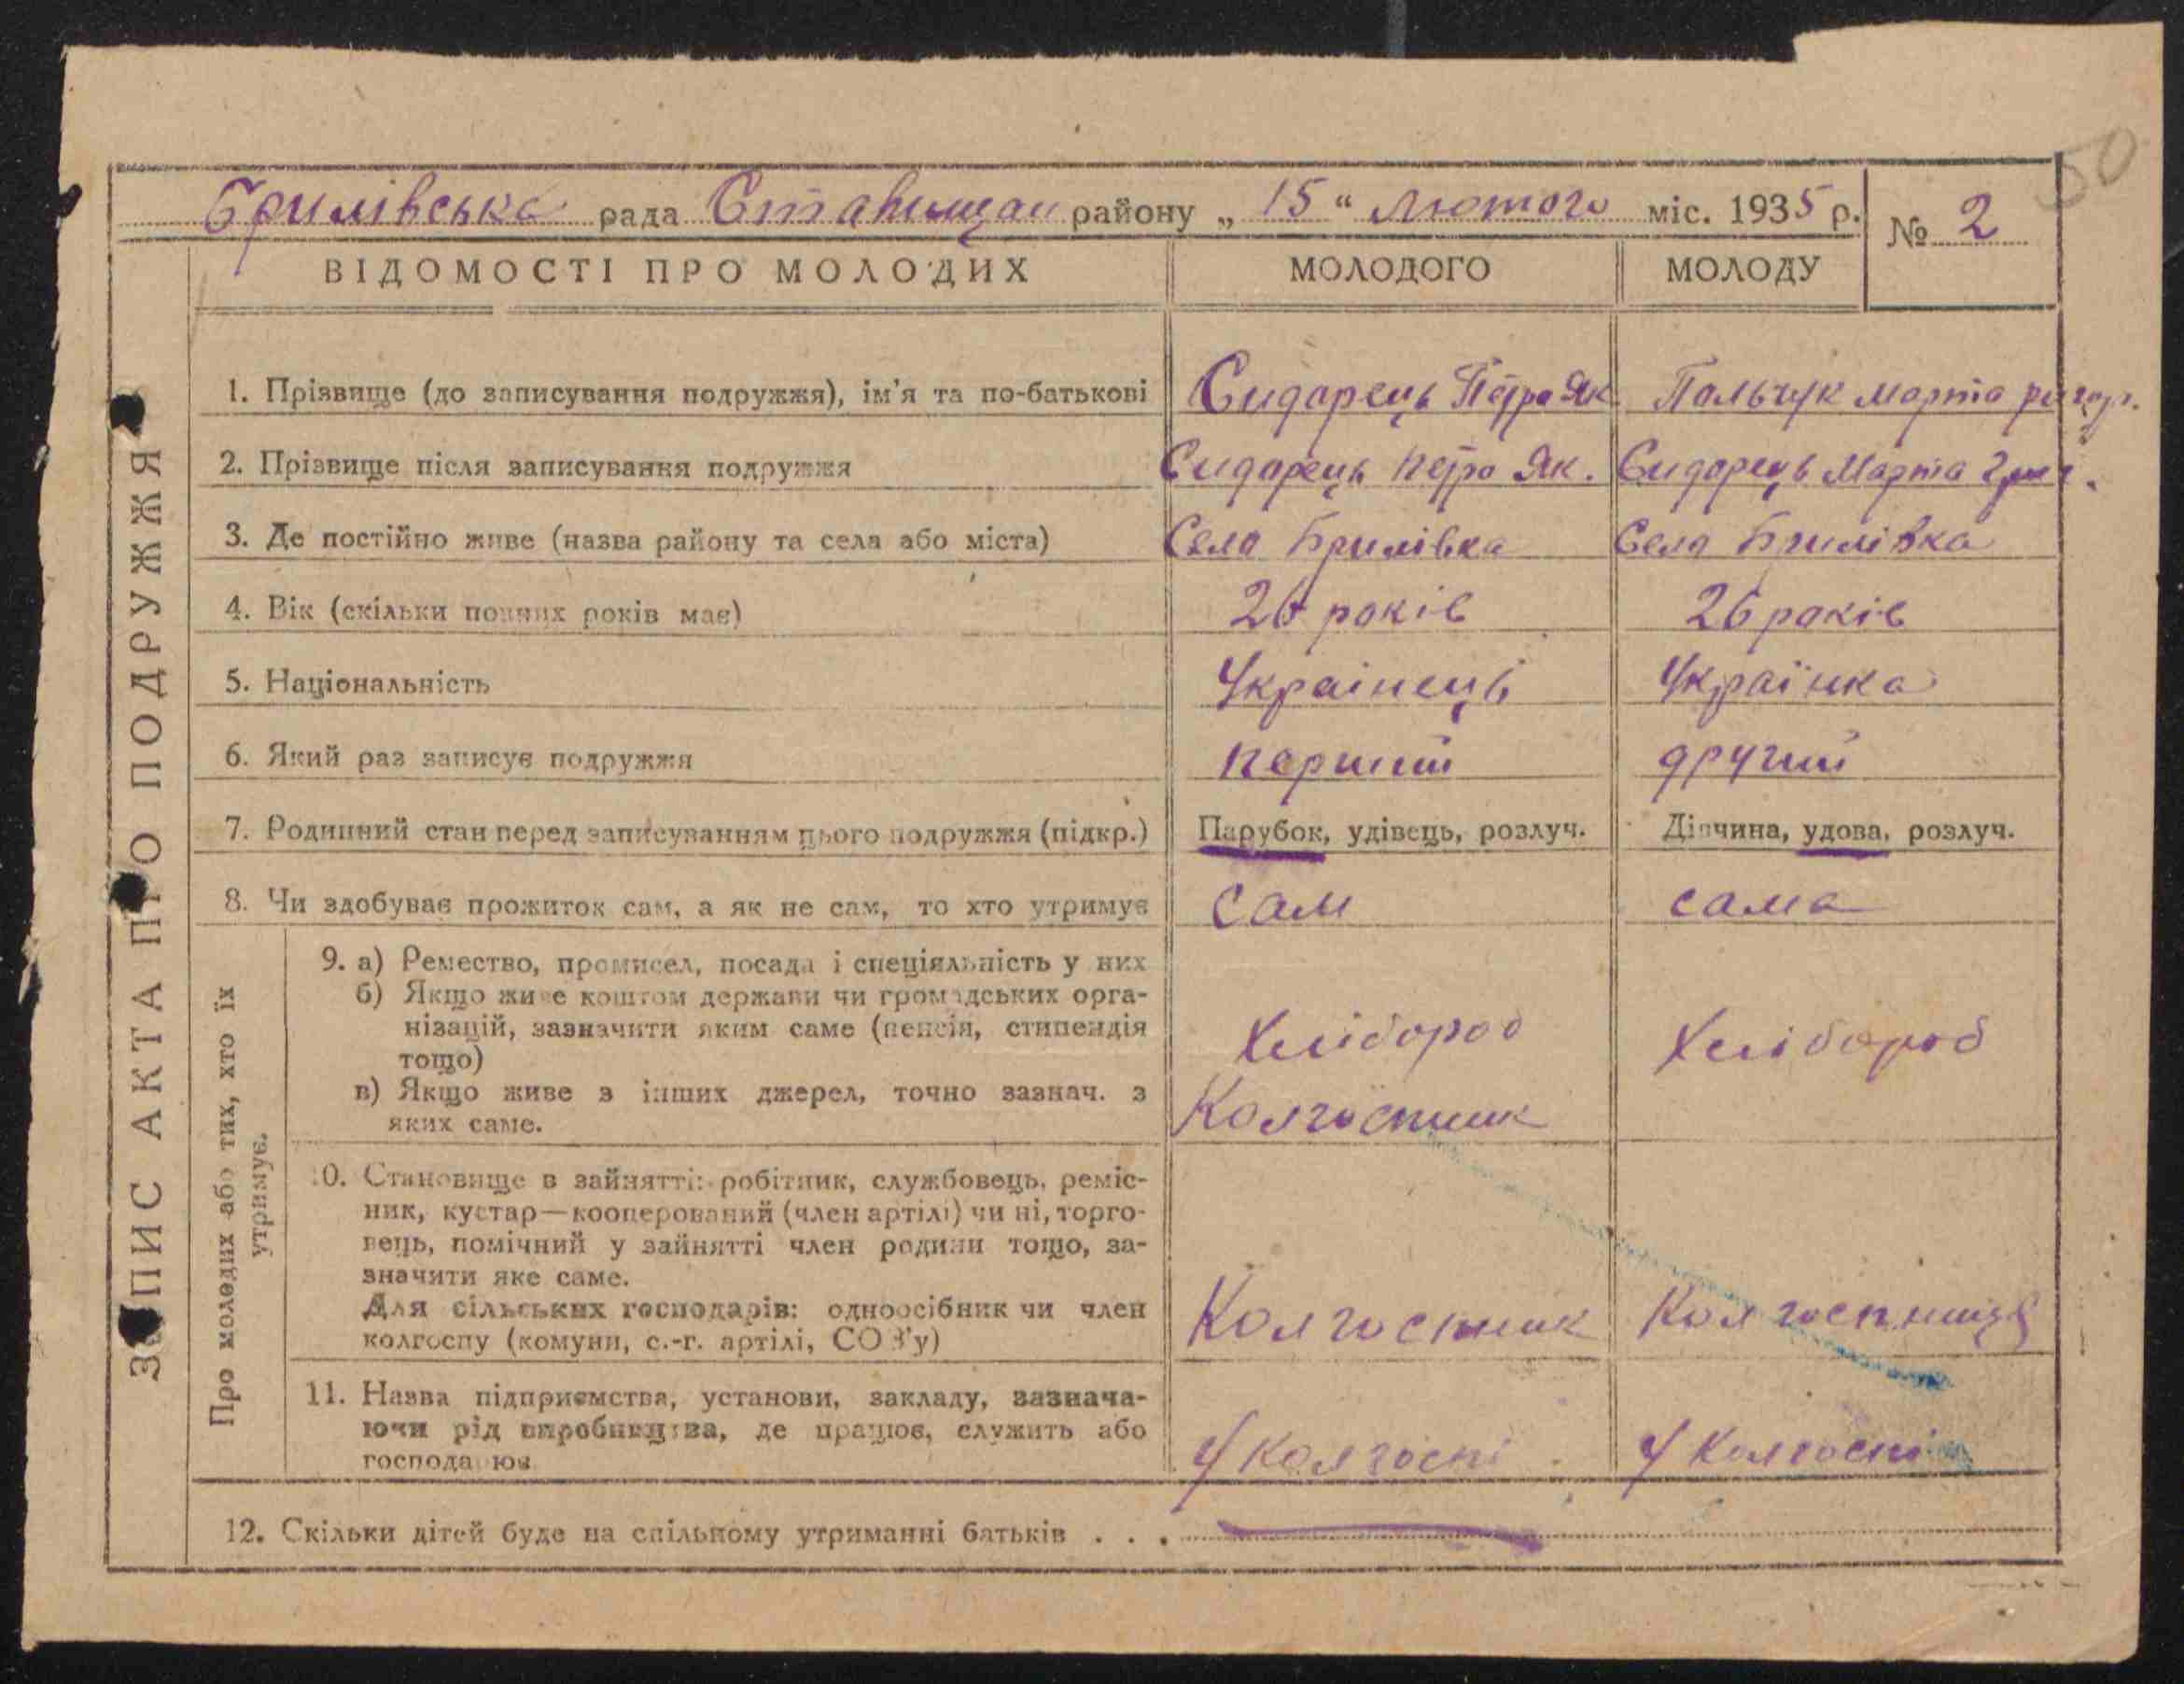 50
Брилівська рада Ставищан району „ 15 “ Лютого міс. 1935 р.
№ 2
ЗАПИС АКТА ПРО ПОДРУЖЖЯ
ВІДОМОСТІ ПРО МОЛОДИХ МОЛОДОГО МОЛОДУ
1. Прізвище (до записування подружжя), ім'я та по-батькові Сидарець Петро Як Пальчук Марта ригор.
2. Прізвище після записування подружжя Сидарець Петро Як. Сидорець Марта Григ.
3. Де постійно живе (назва району та села або міста) Село Брилівка Село Брилівка
4. Вік (скільки повних років має) 26 років 26 років
5. Національність Українець Українка
6. Який раз записує подружжя перший другий
7. Родинний стан перед записуванням цього подружжя (підкр.) Парубок, удівець, розлуч. Дівчина, удова, розлуч.
8. Чи здобуває прожиток сам, а як не сам, то хто утримує сам сама
Про молодих або тих, хто їх
утримує.
9. а) Ремество, промисел, посада і спеціяльність у них
б) Якщо живе коштом держави чи громадських орга-
нізацій, зазначити яким саме (пенсія, стипендія
тощо)
в) Якщо живе з інших джерел, точно зазнач. з
яких саме.
Хлібороб
Колгоспник
Хлібороб
10. Становище в зайнятті: робітник, службовець, реміс-
ник, кустар—кооперований (член артілі) чи ні, торго-
вець, помічний у зайнятті член родини тощо, за-
значити яке саме.
Для сільських господарів: одноосібник чи член
колгоспу (комуни, с.-г. артілі, СОЗ'у)
Колгоспник Колгоспниця
11. Назва підприємства, установи, закладу, зазнача-
ючи рід виробництва, де працює, служить або
господарює
У колгоспі У Колгоспі
12. Скільки дітей буде на спільному утриманні батьків . . .